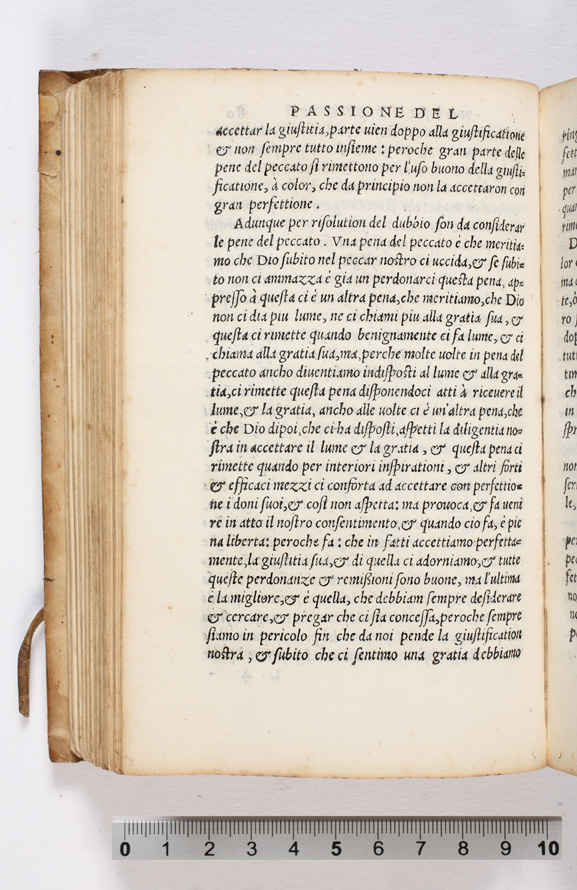 PASSIONE DEL
accettar la giustitia, parte uien doppo alla giustificatione
& non sempre tutto insieme : peroche gran parte delle
pene del peccato si rimettono per l'uso buono della giusti-
ficatione, à color, che da principio non la accettaron con
gran perfettione .
Adunque per risolution del dubbio son da considerar
le pene del peccato . Vna pena del peccato è che meritia-
mo che Dio subito nel peccar nostro ci uccida, & se subi-
to non ci ammazza è gia un perdonarci questa pena, ap-
presso à questa ci è un altra pena, che meritiamo, che Dio
non ci dia piu lume, ne ci chiami piu alla gratia sua, &
questa ci rimette quando benignamente ci fa lume, & ci
chiama alla gratia sua, ma perche molte uolte in pena del
peccato ancho diuentiamo indisposti al lume & alla gra-
tia, ci rimette questa pena disponendoci atti à riceuere il
lume, & la gratia, ancho alle uolte ci è un'altra pena, che
è che Dio dipoi, che ci ha disposti, aspetti la diligentia no-
stra in accettare il lume & la gratia , & questa pena ci
rimette quando per interiori inspirationi , & altri forti
& efficaci mezzi ci conforta ad accettare con perfettio-
ne i doni suoi, & cosi non aspetta: ma prouoca, & fa ueni
re in atto il nostro consentimento, & quando cio fa, è pie
na liberta: peroche fa : che in fatti accettiamo perfetta-
mente, la giustitia sua, & di quella ci adorniamo, & tutte
queste perdonanze & remissioni sono buone, ma l'ultima
è la migliore, & è quella, che debbiam sempre desiderare
& cercare, & pregar che ci sia concessa, peroche sempre
siamo in pericolo fin che da noi pende la giustification
nostra , & subito che ci sentimo una gratia debbiamo
0 1 2 3 4 5 6 7 8 9 10